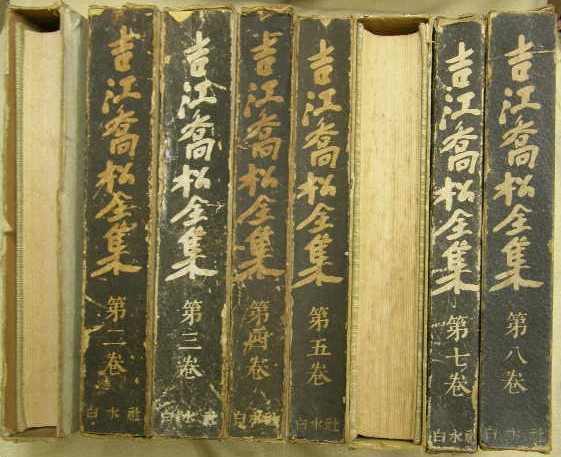 吉江喬松全集
第二卷
白水社
吉江喬松全集
第三卷
白水社
吉江喬松全集
第四卷
白水社
吉江喬松全集
第五卷
白水社
吉江喬松全集
第七卷
白水社
吉江喬松全集
第八卷
白水社